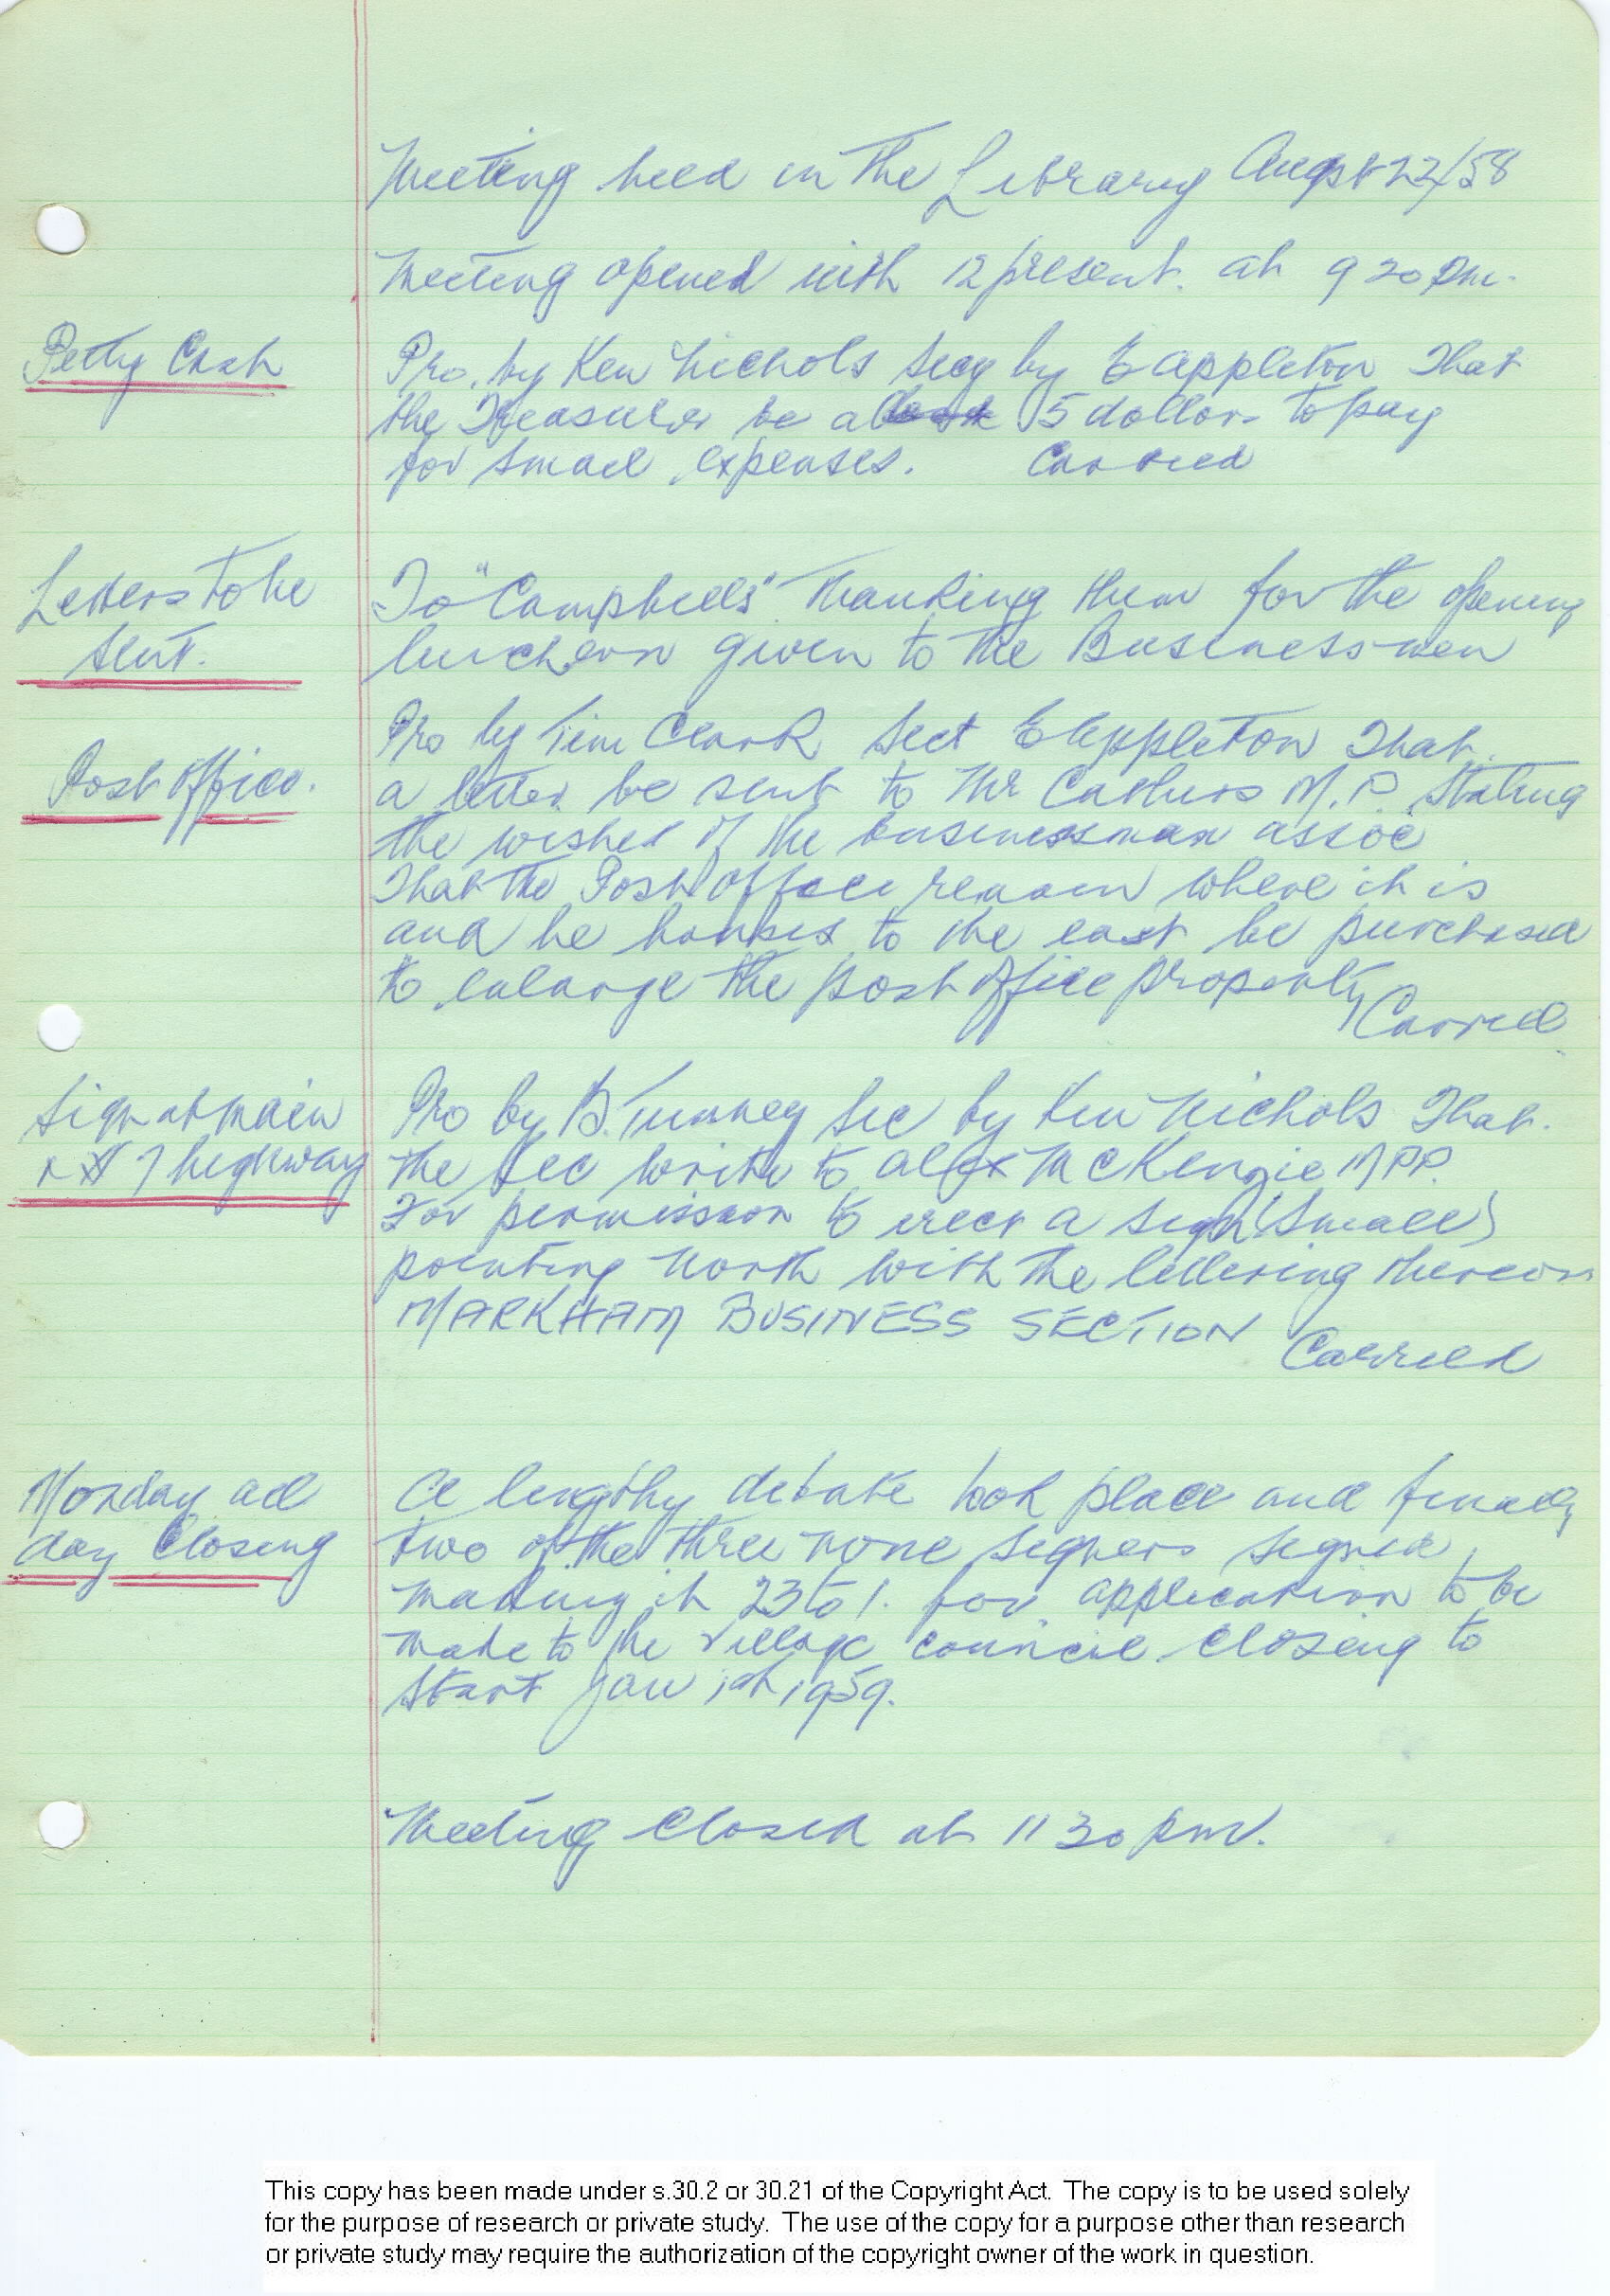 Meeting held in The Library August 22/58
Meeting opened with 12 present. at 9 20 pm.
Petty Cash
Pro. by Ken Nichols Secg by E Appleton That
the Treasurer be 5 dollars to pay
for small expenses. Carried
Letters to be
sent.
To "Campbells" Thanking them for the opening
luncheon given to the Businessmen
Post office.
Pro by Tim Clark Sect E Appleton That
a letter be sent to Mr Cathers M.P. Stating
the wishes of the businessman assoc
That the Post Office remain where it is
and he houses to the east be purchased
to enlarge the post office property Carried
Sign at main
7 highway
Pro by B. Tunney Sec by Ken Nichols That.
the Sec write to Alex McKenzie MPP.
For permission to erect a sign (small)
pointing North with the lettering thereon
MARKHAM BUSINESS SECTION
Carried
Monday all
day Closing
A lengthy debate took place and finally
two of the three none signers signed,
making it 23 to 1. for application to be
made to the village council closing to
start Jan 1st 1959.
Meeting Closed at 11 30 pm.
This copy has been made under s.30.2 or 30.21 of the Copyright Act. The copy is to be used solely
for the purpose of research or private study. The use of the copy for a purpose other than research
or private study may require the authorization of the copyright owner of the work in question.